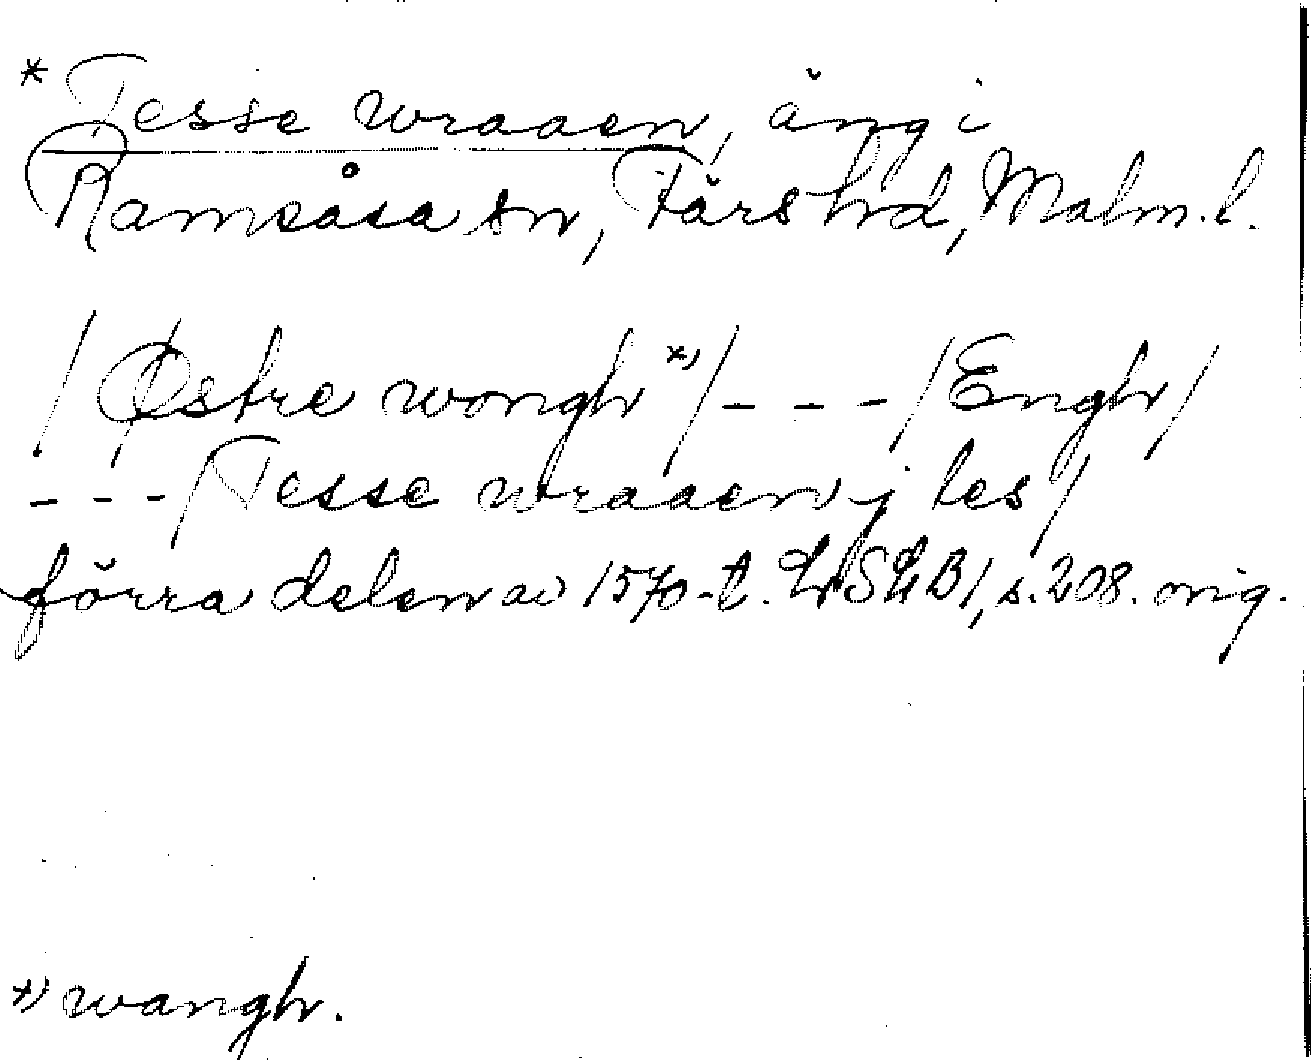 * Tesse wraaen, äng i
Ramsåsa sn, Färs hd, Malm. l.
/Østre wongh *)/- - -/Engh/
- - -/Tesse wraaen j les/
förra delen av 1570-t. s. 208. orig.
*) wangh.